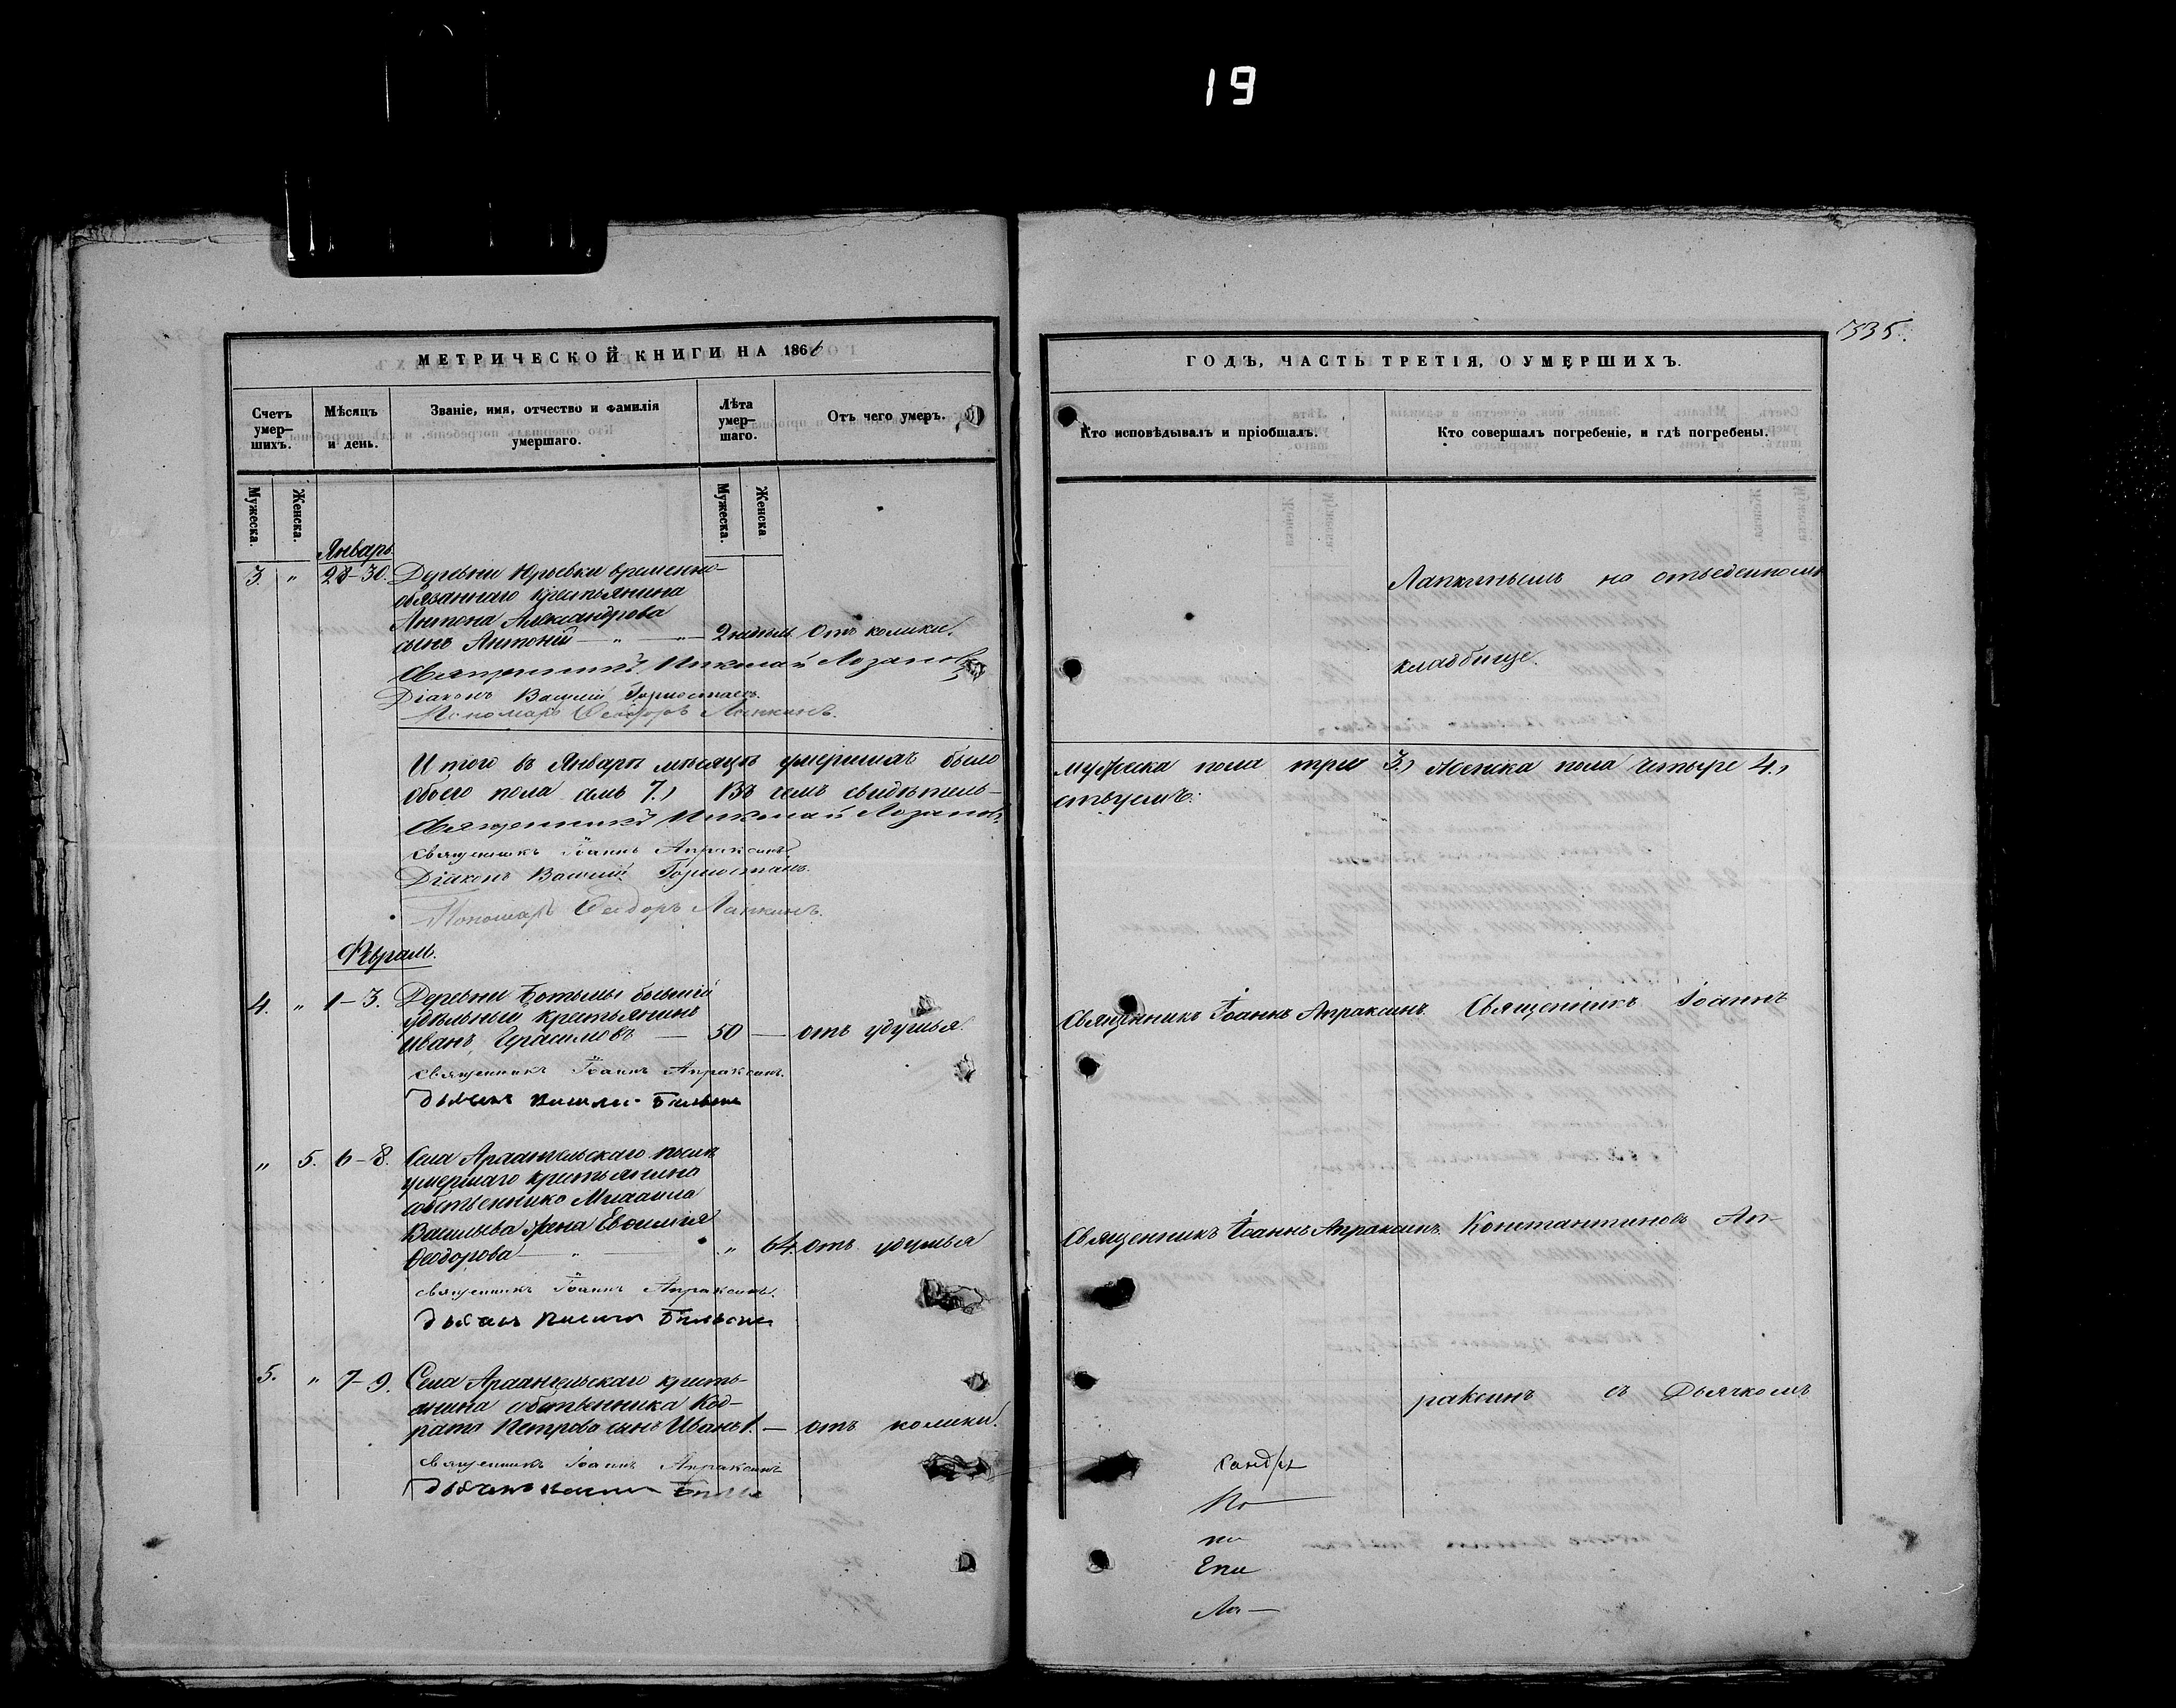 19
335.
МЕТРИЧЕСКОЙ КНИГИ НА 1866
Счетъ умер-шихъ.
Мѣсяцъ и день.
Званіе, имя, отчество и фамилія умершаго.
Лѣта умер-шаго.
Отъ чего умеръ.
Мужеска.
Женска.
Мужеска.
Женска
Январь
3. " 28-30. Деревни Юрьевки временно-
обязаннаго крестьянина
Антона Александрова
сынъ Антоній — " — " — 2 недѣль Отъ колики.
Священникъ Николай Лозановъ
Діаконъ Василій Горностаевъ.
Пономарь Ѳеодоръ Лапкинъ.
Итого въ Январѣ мѣсяцѣ умершихъ было
обоего пола семь 7.) Въ чемъ свидѣтель-
Священникъ Николай Лозановъ
Священникъ Іоаннъ Апраксинъ.
Діаконъ Василій Горностаевъ.
Пономарь Ѳеодоръ Лапкинъ.
4. " 1-3. Деревни
удѣльный крестьянинъ
Иванъ Герасимовъ — 50 — отъ удушья.
Священникъ Іоаннъ Апраксинъ.
" 5. 6-8. Села Архангельскаго
умершаго крестьянина
собственника Михаила
Васильева жена Евфимія
Ѳеодорова — " — " 64. отъ удушья
Священникъ Іоаннъ Апраксинъ.
5. " 7-9. Села Архангельскаго кресть-
янина собственника Код-
рата Петрова сынъ Иванъ 1. — отъ колики.
Священникъ Іоаннъ Апраксинъ
ГОДЪ, ЧАСТЬ ТРЕТІЯ, О УМЕРШИХЪ.
Кто исповѣдывалъ и пріобщалъ.
Кто совершалъ погребеніе, и гдѣ погребены.
Лапкинымъ на отведенномъ
кладбище.
мужеска пола три 3.) женска пола четыре 4.)
ствуемъ:
Священникъ Іоаннъ Апраксинъ. Священникъ Іоаннъ
Священникъ Іоаннъ Апраксинъ. Константиновъ Ап-
раксинъ съ Дьячкомъ
По
пи
Епи
Ла—